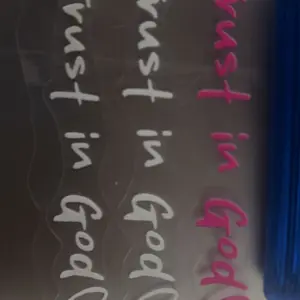 rust in God
rust in God
rust in God